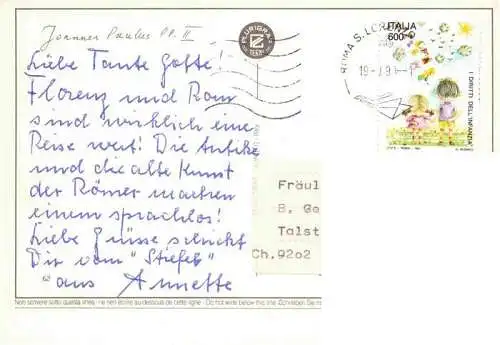 Joannes Paulus PP. II
Liebe Tante Gotte!
Florenz und Rom
sind wirklich eine
Reise wert! Die Antike
und die alte Kunst
der Römer machen
einem sprachlos!
Liebe Grüsse schickt
Dir vom "Stiefel"
aus Annette
PLURIGRAF
TERNI
ROMA S.
19-
ITALIA
600
I DIRITTI DELL'INFANZIA
Fräul
B. Go
Talst
Ch.9202
Non scrivere sotto questa linea - ne rien écrire au dessous de cette ligne - Do not write below this line